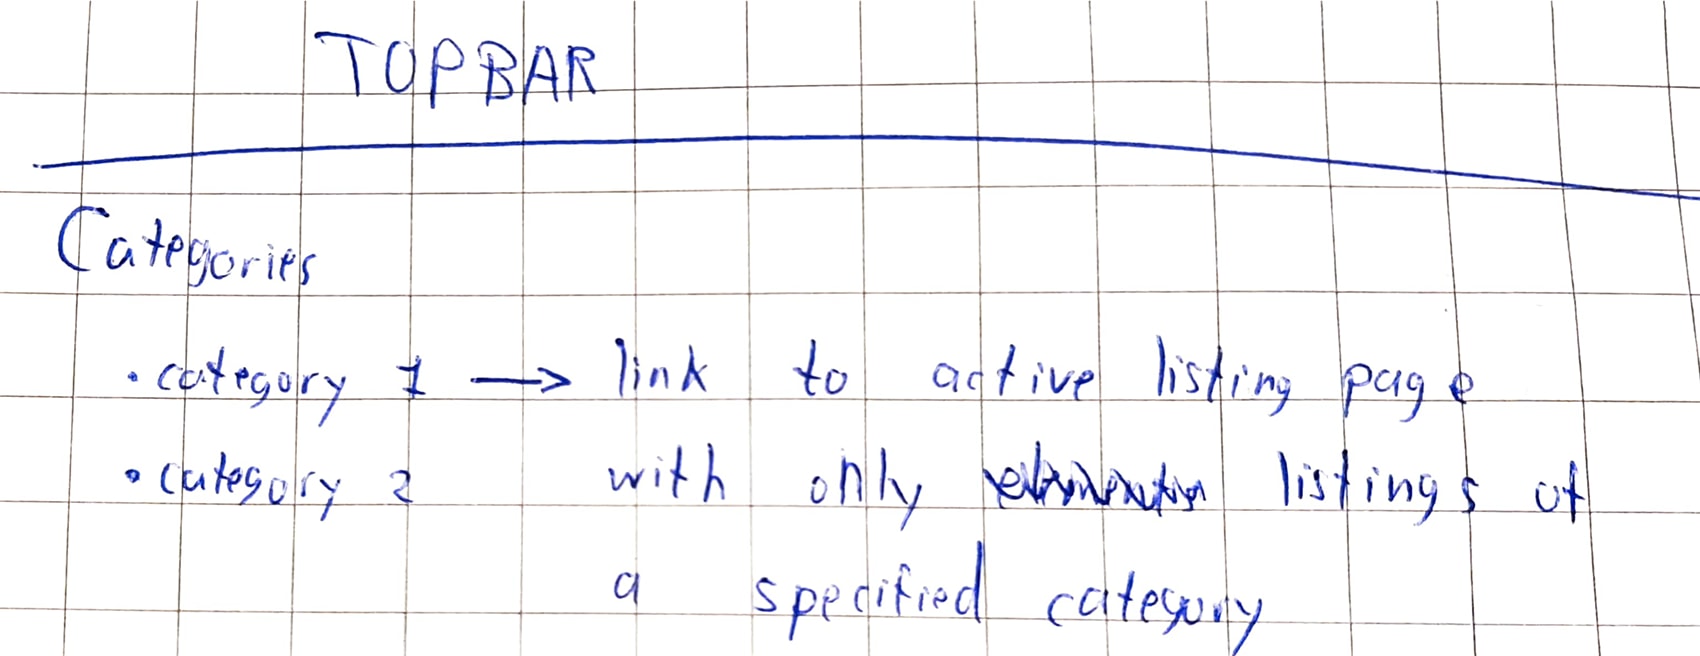 TOPBAR
Categories
• category 1 → link to active listing page
• category 2 with only listings of
a specified category